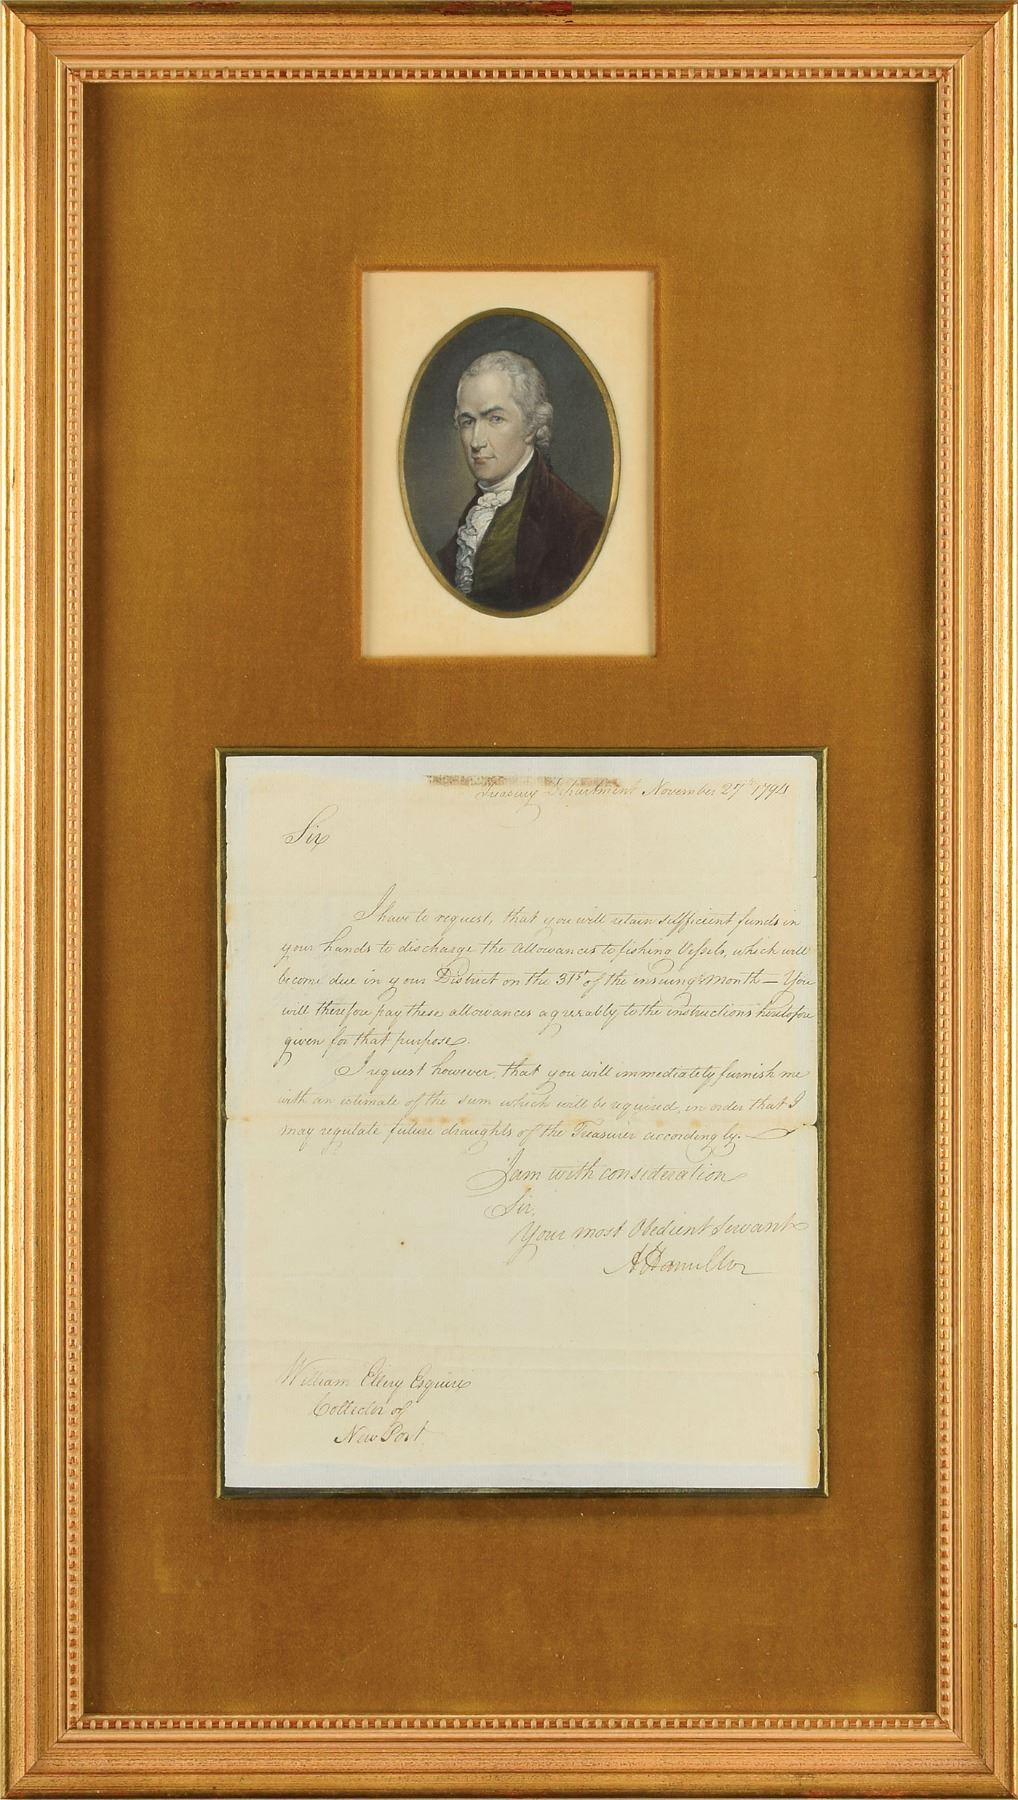 Treasury Department November 27th 1794
Sir
I have to request, that you will retain sufficient funds in
your hands to discharge the allowances to fishing Vessels, which will
become due in your District on the 31st of the ensuing month — You
will therefore pay these allowances agreeably to the instructions heretofore
given for that purpose.
I request however, that you will immediately furnish me
with an estimate of the sum which will be required, in order that I
may regulate future draughts of the Treasurer accordingly. —
I am with consideration
Sir,
Your most Obedient Servant
A Hamilton
William Ellery Esquire
Collector of
New Port